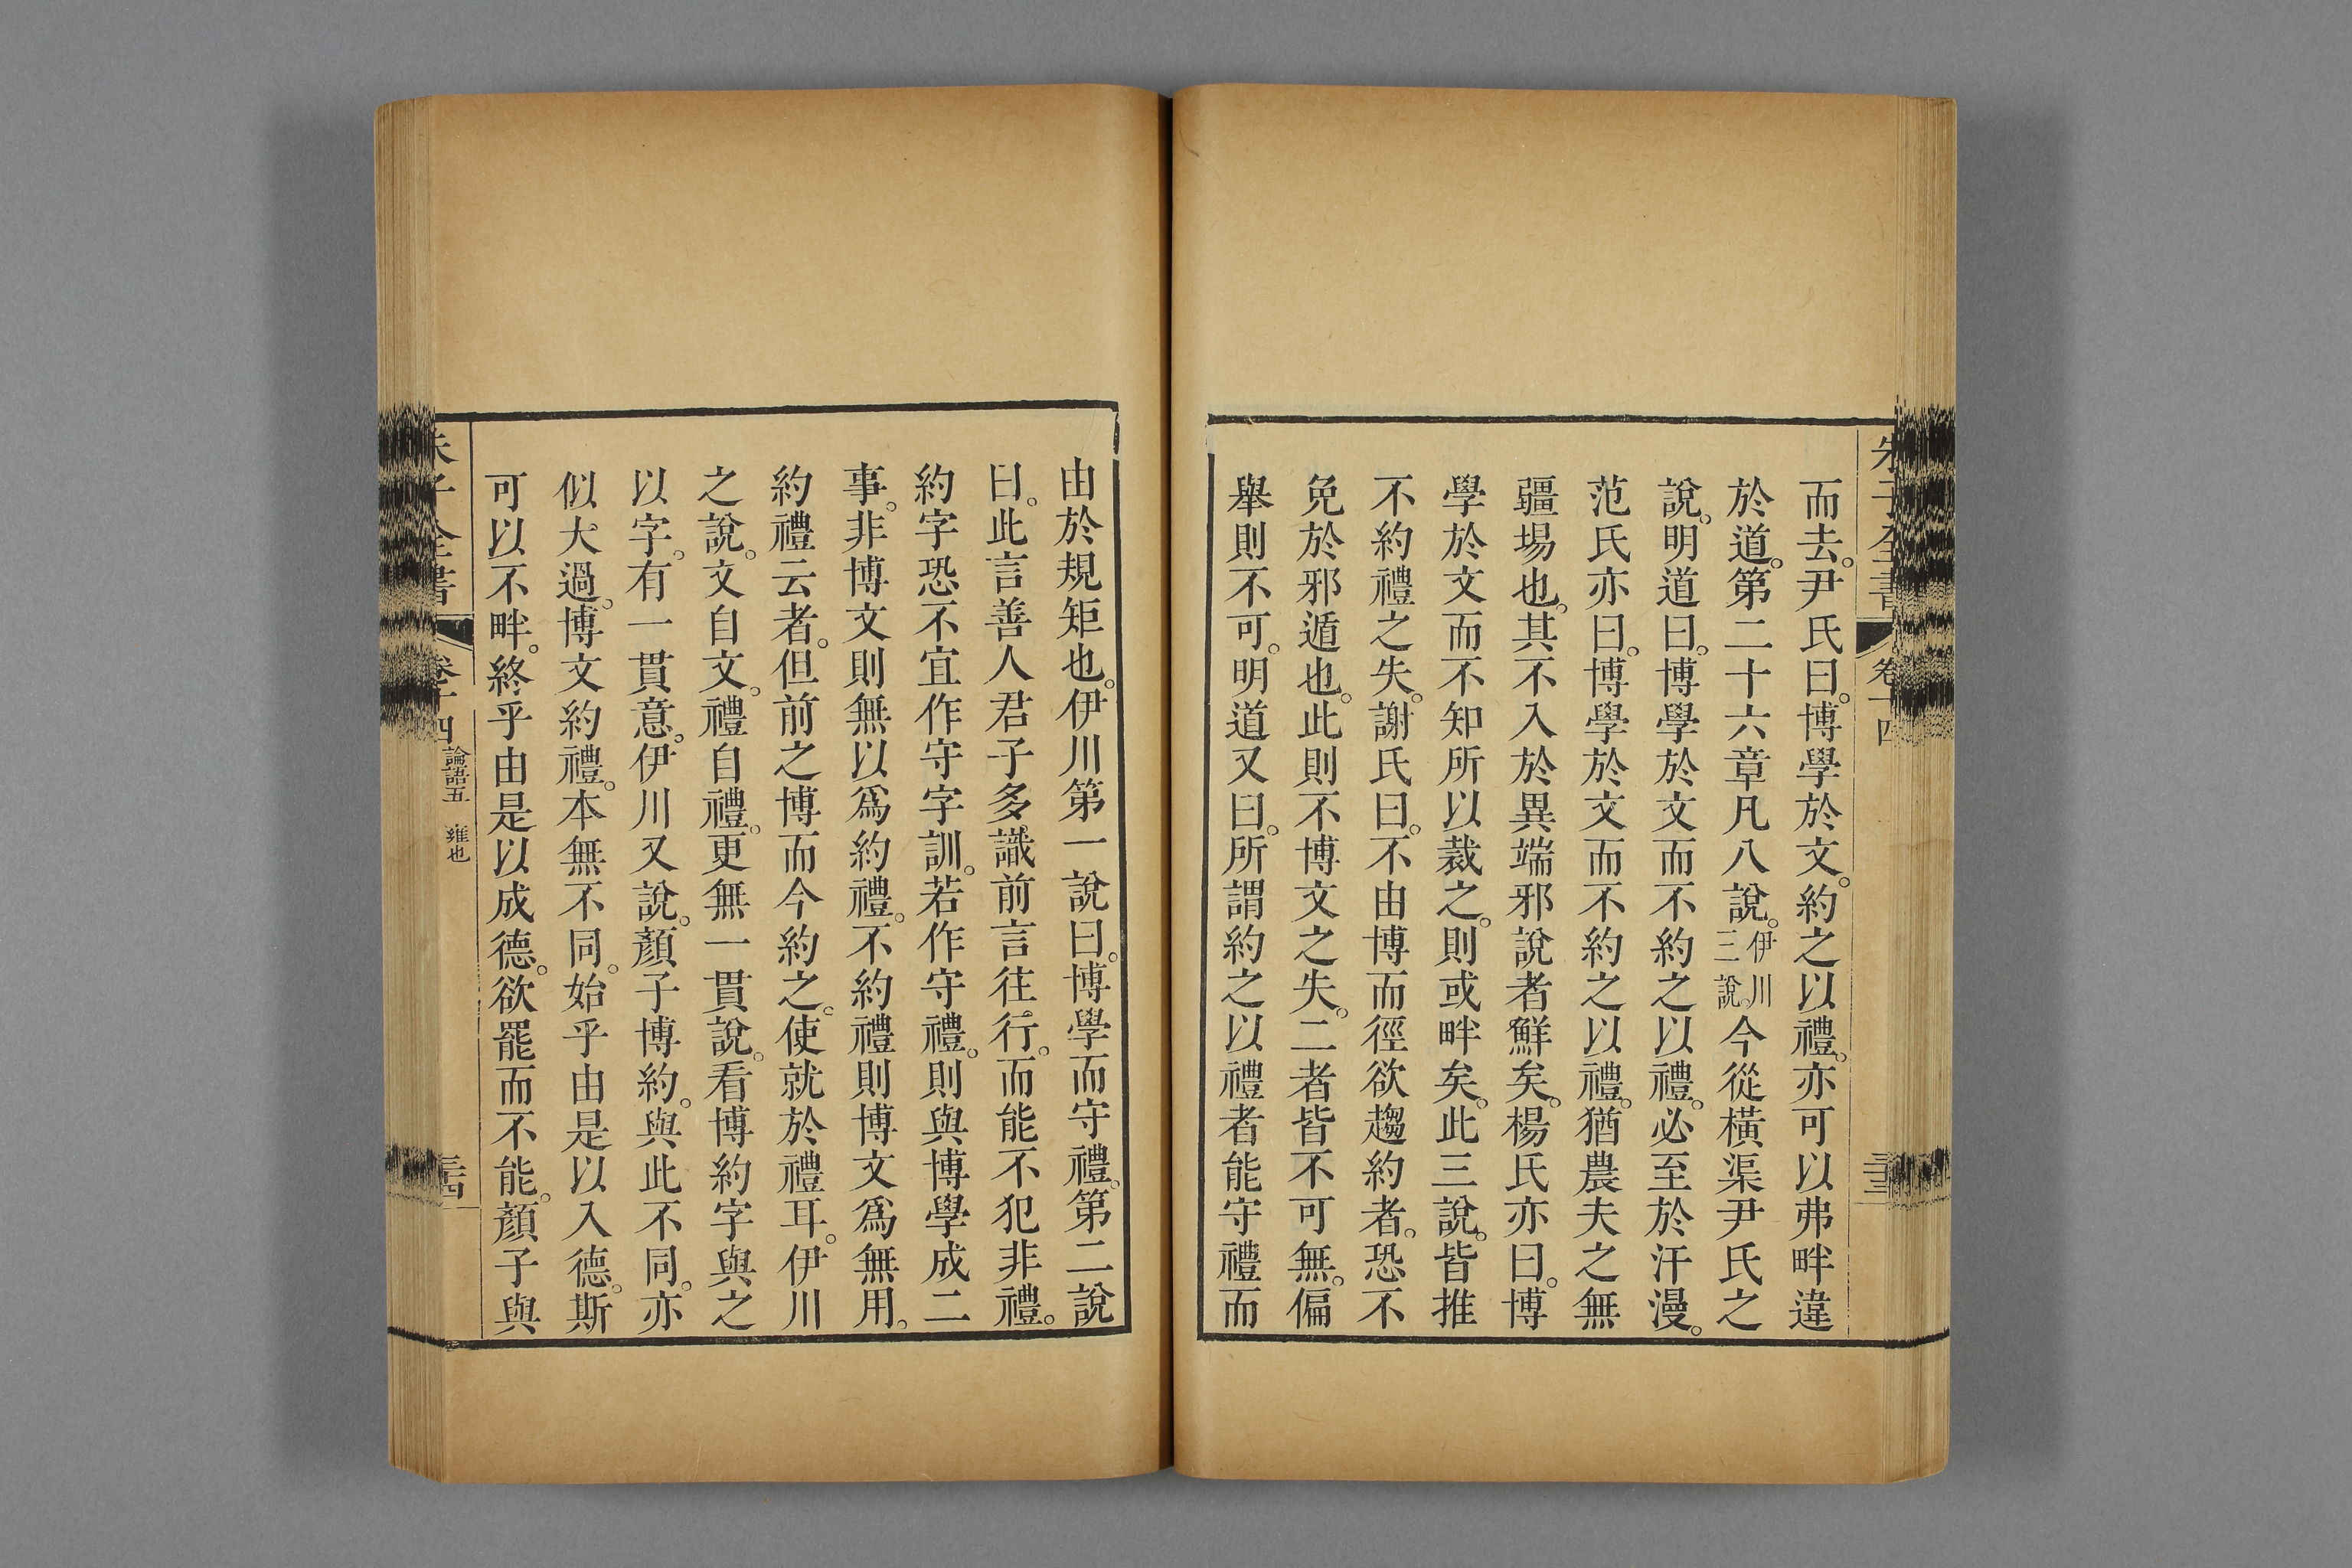 朱子全書 卷十四 三十三
而去。尹氏曰。博學於文。約之以禮。亦可以弗畔違
於道。第二十六章凡八說。伊川三說。今從橫渠尹氏之
說。明道曰。博學於文而不約之以禮。必至於汗漫。
范氏亦曰。博學於文而不約之以禮。猶農夫之無
疆場也。其不入於異端邪說者鮮矣。楊氏亦曰。博
學於文而不知所以裁之。則或畔矣。此三說。皆推
不約禮之失。謝氏曰。不由博而徑欲趨約者。恐不
免於邪遁也。此則不博文之失。二者皆不可無。偏
舉則不可。明道又曰。所謂約之以禮者能守禮而
由於規矩也。伊川第一說曰。博學而守禮。第二說
曰。此言善人君子多識前言往行。而能不犯非禮。
約字恐不宜作守字訓。若作守禮。則與博學成二
事。非博文則無以爲約禮。不約禮則博文爲無用。
約禮云者。但前之博而今約之。使就於禮耳。伊川
之說。文自文。禮自禮。更無一貫說。看博約字與之
以字。有一貫意。伊川又說。顏子博約。與此不同。亦
似大過。博文約禮。本無不同。始乎由是以入德。斯
可以不畔。終乎由是以成德。欲罷而不能。顏子與
朱子全書 卷十四 論語五 雍也 三十四